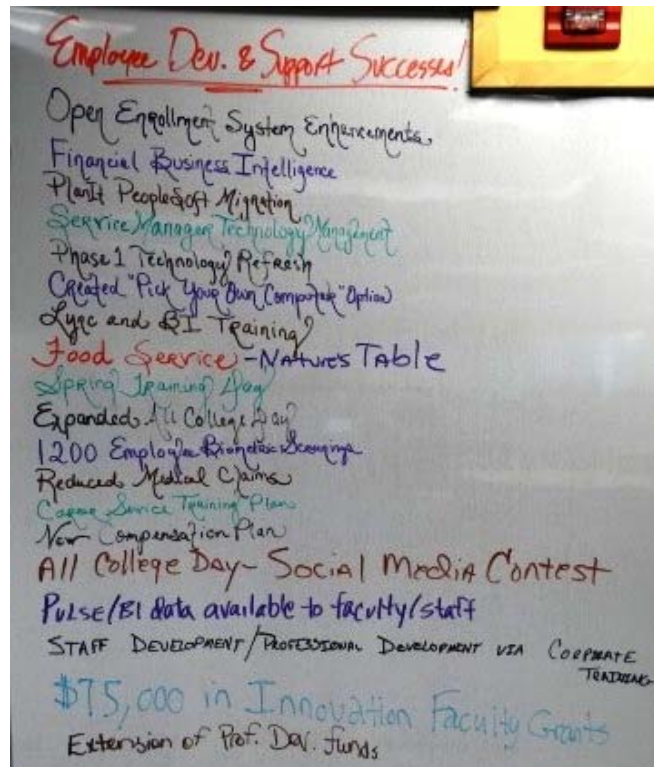 Employee Dev. & Support Successes!
Open Enrollment System Enhancements
Financial Business Intelligence
PlanIt PeopleSoft Migration
Service Manager Technology Management
Phase 1 Technology Refresh
Created "Pick Your Own Computer" Option
Lync and BI Training
Food Service - Nature's Table
Spring Training Day
Expanded All College Day
1200 Employee Biometric Screenings
Reduced Medical Claims
Service Training Plan
New Compensation Plan
All College Day - Social Media Contest
Pulse/BI data available to faculty/staff
Staff Development/Professional Development via Corporate
Training
$75,000 in Innovation Faculty Grants
Extension of Prof. Dev. funds